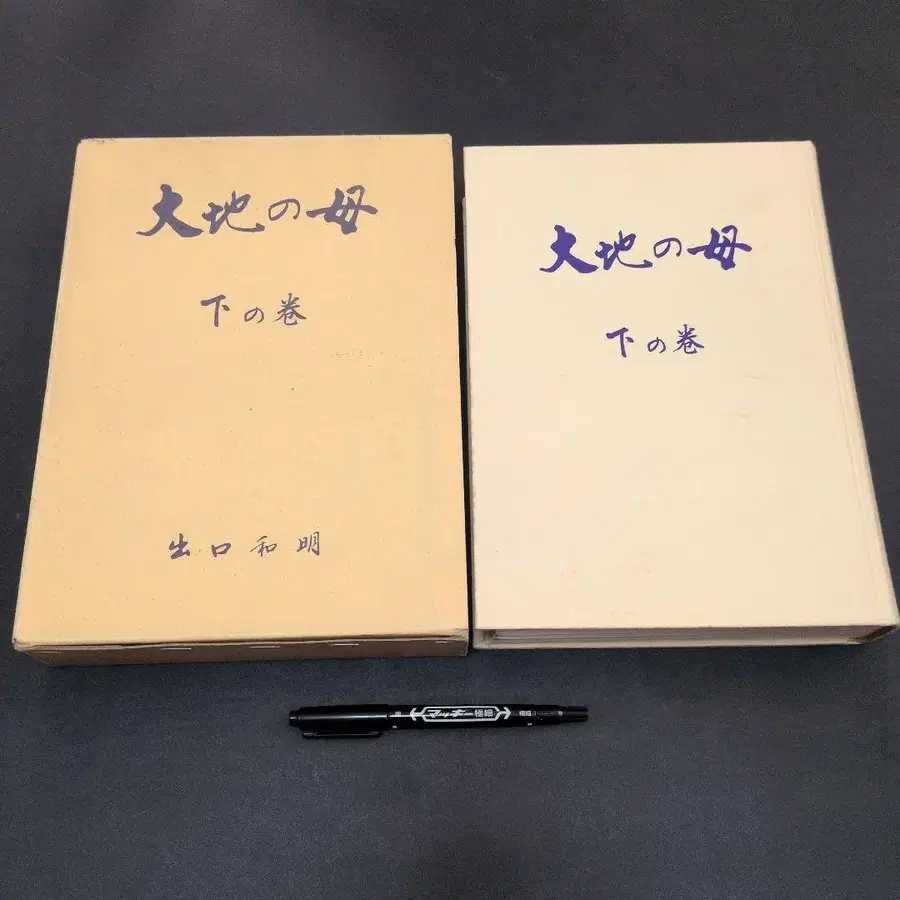 大地の母
下の巻
出口和明
大地の母
下の巻
マッキー極細
極細